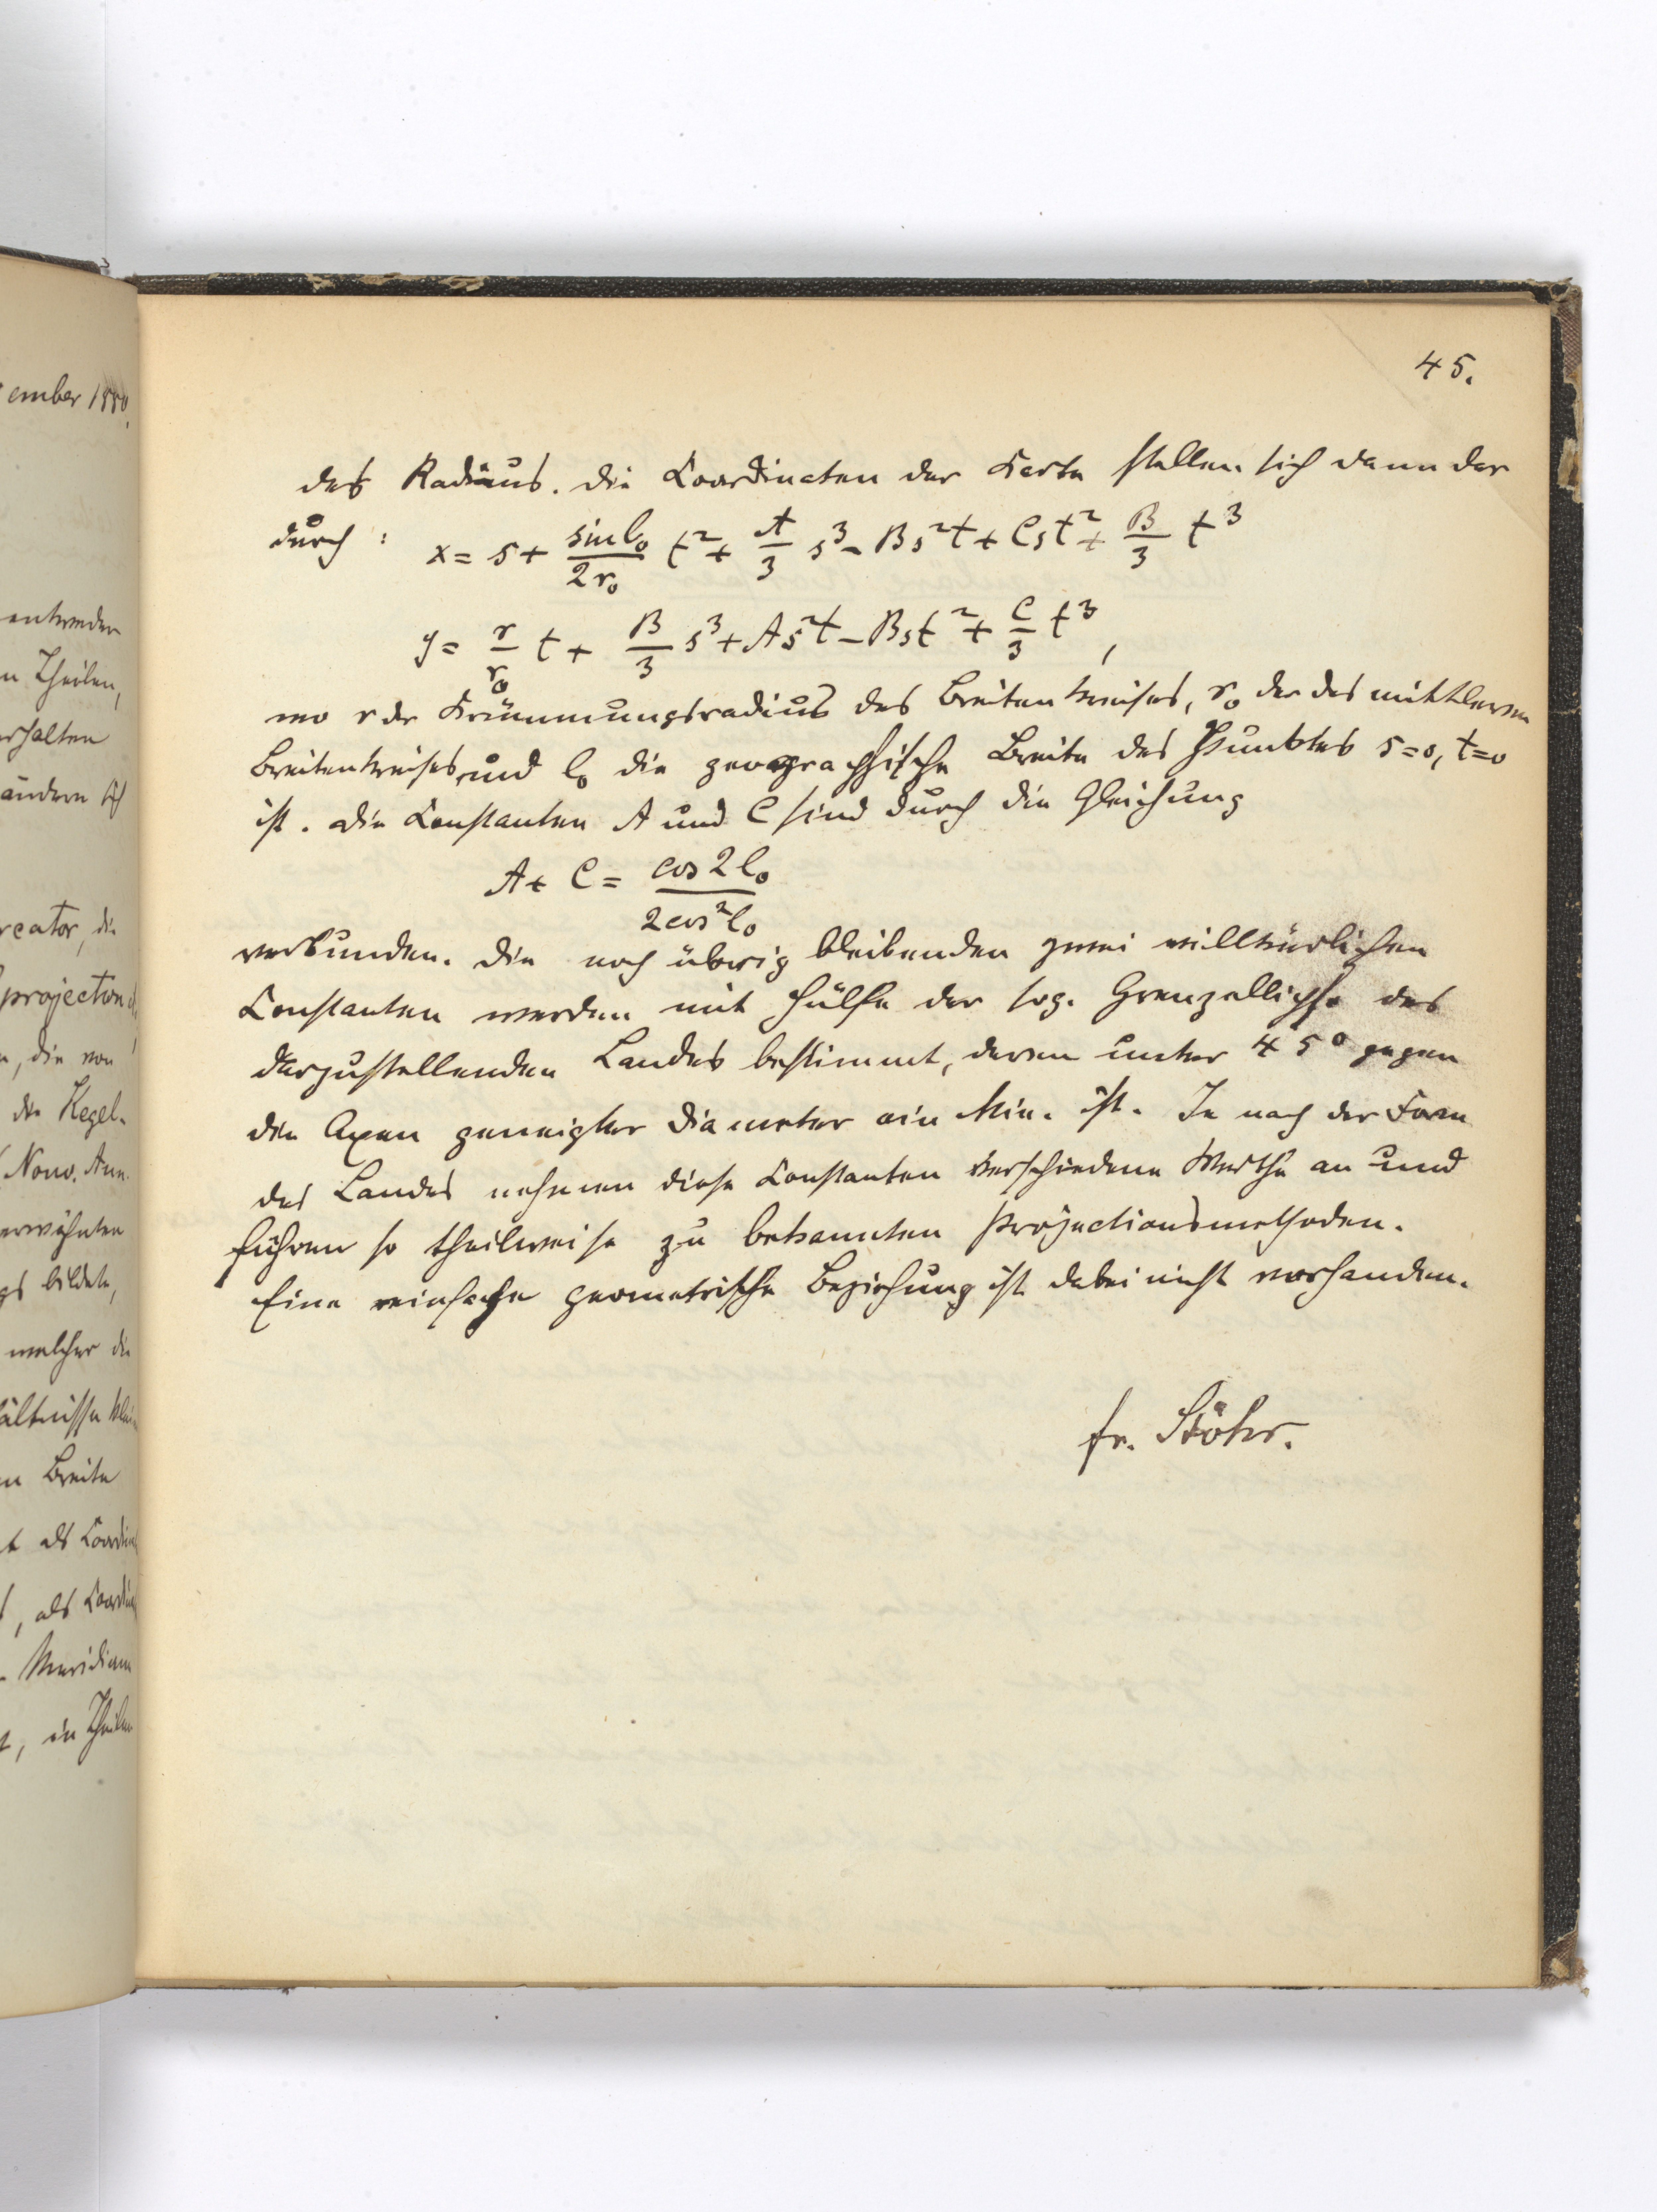 ember 1880.
entweder
n Theilen,
erhalten
ändern sich
rcator, die
projection
n, die von
die Kegel-
Nouv. Ann.
erwähnten
gs bildete,
welcher die
ältnisse
n Breite
t als
, als
Meridian
t, in Theilen
45.
des Radius. Die Coordinaten der Karte stellen sich dann dar
durch : x = s + sin l₀/2r₀ t² + A/3 s³ - Bs²t + Cst² + B/3 t³
y = r/r₀ t + B/3 s³ + As²t - Bst² + C/3 t³,
wo r der Krümmungsradius des Breitenkreises, r₀ der des mittleren
Breitenkreises, und l₀ die geographische Breite des Punktes s=0, t=0
ist. Die Constanten A und C sind durch die Gleichung
A + C = cos 2l₀ / 2cos²l₀
verbunden. Die noch übrig bleibenden zwei willkürlichen
Constanten werden mit Hülfe der sog. Grenzellipse des
darzustellenden Landes bestimmt, deren unter 45° gegen
die Axen geneigter Diameter ein Min. ist. Je nach der Form
des Landes nehmen diese Constanten verschiedene Werthe an und
führen so theilweise zu bekannten Projectionsmethoden.
Eine einfache geometrische Beziehung ist dabei nicht vorhanden.
Fr. Stöhr.